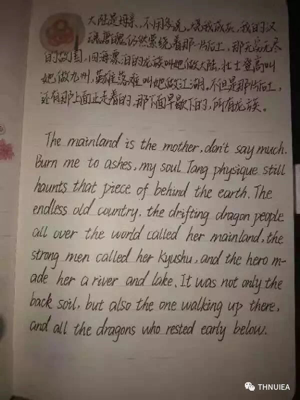 大陆是母亲,不用多说。烧我成灰,我的汉
魂唐魄仍然萦绕着那一片后土。那无穷无尽
的故国,四海漂泊的龙族叫她做大陆,壮士登高叫
她做九州,英雄落难叫她做江湖。不但是那片后土,
还有那上面正走着的,那下面早歇下的,所有龙族。
The mainland is the mother, don't say much.
Burn me to ashes, my soul Tang physique still
haunts that piece of behind the earth. The
endless old country, the drifting dragon people
all over the world called her mainland, the
strong men called her Kyushu, and the hero m-
ade her a river and lake. It was not only the
back soil, but also the one walking up there,
and all the dragons who rested early below.
THNUIEA